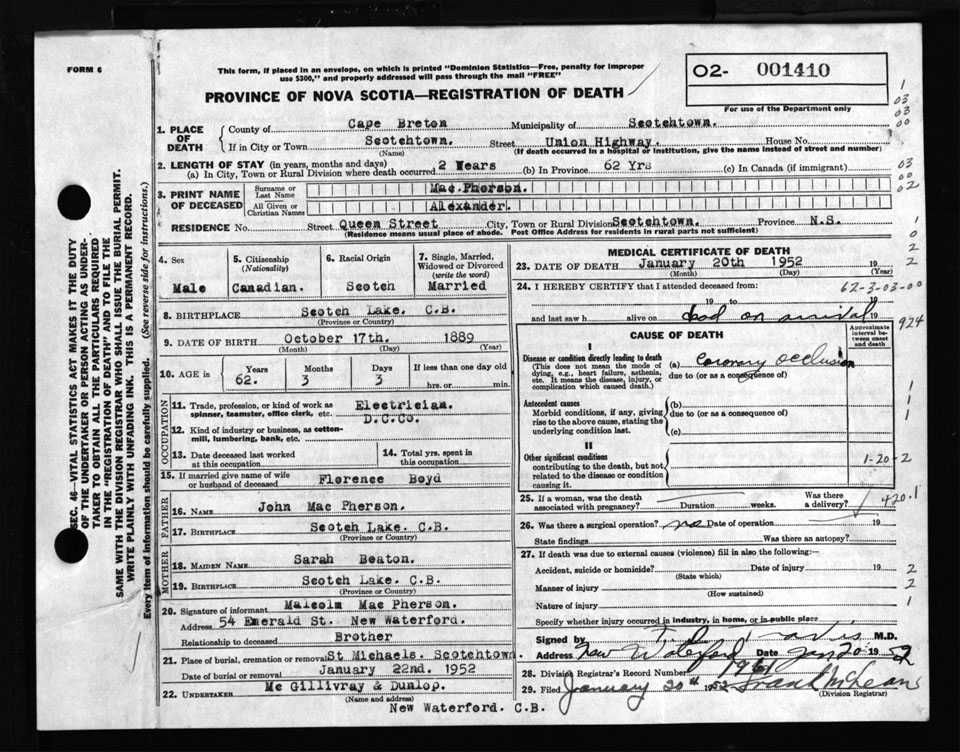 FORM 6
This form, if placed in an envelope, on which is printed "Dominion Statistics—Free, penalty for improper
use $300," and properly addressed will pass through the mail "FREE"
PROVINCE OF NOVA SCOTIA—REGISTRATION OF DEATH
O2- 001410
For use of the Department only
1. PLACE OF DEATH
County of Cape Breton Municipality of Scotchtown.
If in City or Town Scotchtown. Street Union Highway. House No.
(Name) (If death occurred in a hospital or institution, give the name instead of street and number)
2. LENGTH OF STAY (in years, months and days)
(a) In City, Town or Rural Division where death occurred 2 Wears (b) In Province 62 Yrs (c) In Canada (if immigrant)
3. PRINT NAME OF DECEASED
Surname or Last Name Mac Pherson.
All Given or Christian Names Alexander.
RESIDENCE No. Street Queen Street City, Town or Rural Division Scotchtown. Province N.S.
(Residence means usual place of abode. Post Office Address for residents in rural parts not sufficient)
4. Sex
Male
5. Citizenship (Nationality)
Canadian.
6. Racial Origin
Scotch
7. Single, Married, Widowed or Divorced (write the word)
Married
8. BIRTHPLACE Scotch Lake. C.B.
(Province or Country)
9. DATE OF BIRTH October 17th. 1889
(Month) (Day) (Year)
10. AGE in
Years Months Days If less than one day old
62. 3 3 hrs. or min.
OCCUPATION
11. Trade, profession, or kind of work as spinner, teamster, office clerk, etc. Electrician.
D.C.Co.
12. Kind of industry or business, as cotton-mill, lumbering, bank, etc.
13. Date deceased last worked at this occupation
14. Total yrs. spent in this occupation
15. If married give name of wife or husband of deceased Florence Boyd
FATHER
16. NAME John Mac Pherson.
17. BIRTHPLACE Scotch Lake. C.B.
(Province or Country)
MOTHER
18. MAIDEN NAME Sarah Beaton.
19. BIRTHPLACE Scotch Lake. C.B.
(Province or Country)
20. Signature of informant Malcolm Mac Pherson.
Address 54 Emerald St. New Waterford.
Relationship to deceased Brother
21. Place of burial, cremation or removal St Michaels. Scotchtown.
Date of burial or removal January 22nd. 1952
22. UNDERTAKER Mc Gillivray & Dunlop.
(Name and address)
New Waterford. C.B.
MEDICAL CERTIFICATE OF DEATH
23. DATE OF DEATH January 20th 1952 19
(Month) (Day) (Year)
24. I HEREBY CERTIFY that I attended deceased from:
62-3-03-00
19 to 19
and last saw h alive on dead on arrival 19
924
CAUSE OF DEATH
Approximate interval between onset and death
I
Disease or condition directly leading to death
(This does not mean the mode of dying, e.g., heart failure, asthenia, etc. It means the disease, injury, or complication which caused death.)
(a) Coronary occlusion
due to (or as a consequence of)
Antecedent causes
Morbid conditions, if any, giving rise to the above cause, stating the underlying condition last.
(b)
due to (or as a consequence of)
(c)
II
Other significant conditions
contributing to the death, but not related to the disease or condition causing it.
1-20-2
25. If a woman, was the death associated with pregnancy? Duration weeks. Was there a delivery?
420.1
26. Was there surgical operation? no Date of operation 19
State findings Was there an autopsy?
27. If death was due to external causes (violence) fill in also the following:—
Accident, suicide or homicide? Date of injury 19
(State which)
Manner of injury
(How sustained)
Nature of injury
Specify whether injury occurred in industry, in home, or in public place
Signed by Travis M.D.
Address New Waterford Date Jan 20 1952
28. Division Registrar's Record Number 1961
29. Filed January 20th 1952 Frank McLean
(Division Registrar)
SEC. 46—VITAL STATISTICS ACT MAKES IT THE DUTY
OF THE UNDERTAKER OR PERSON ACTING AS UNDER-
TAKER TO OBTAIN ALL THE PARTICULARS REQUIRED
IN THE "REGISTRATION OF DEATH" AND TO FILE THE
SAME WITH THE DIVISION REGISTRAR WHO SHALL ISSUE THE BURIAL PERMIT.
WRITE PLAINLY WITH UNFADING INK. THIS IS A PERMANENT RECORD.
Every item of information should be carefully supplied. (See reverse side for instructions.)